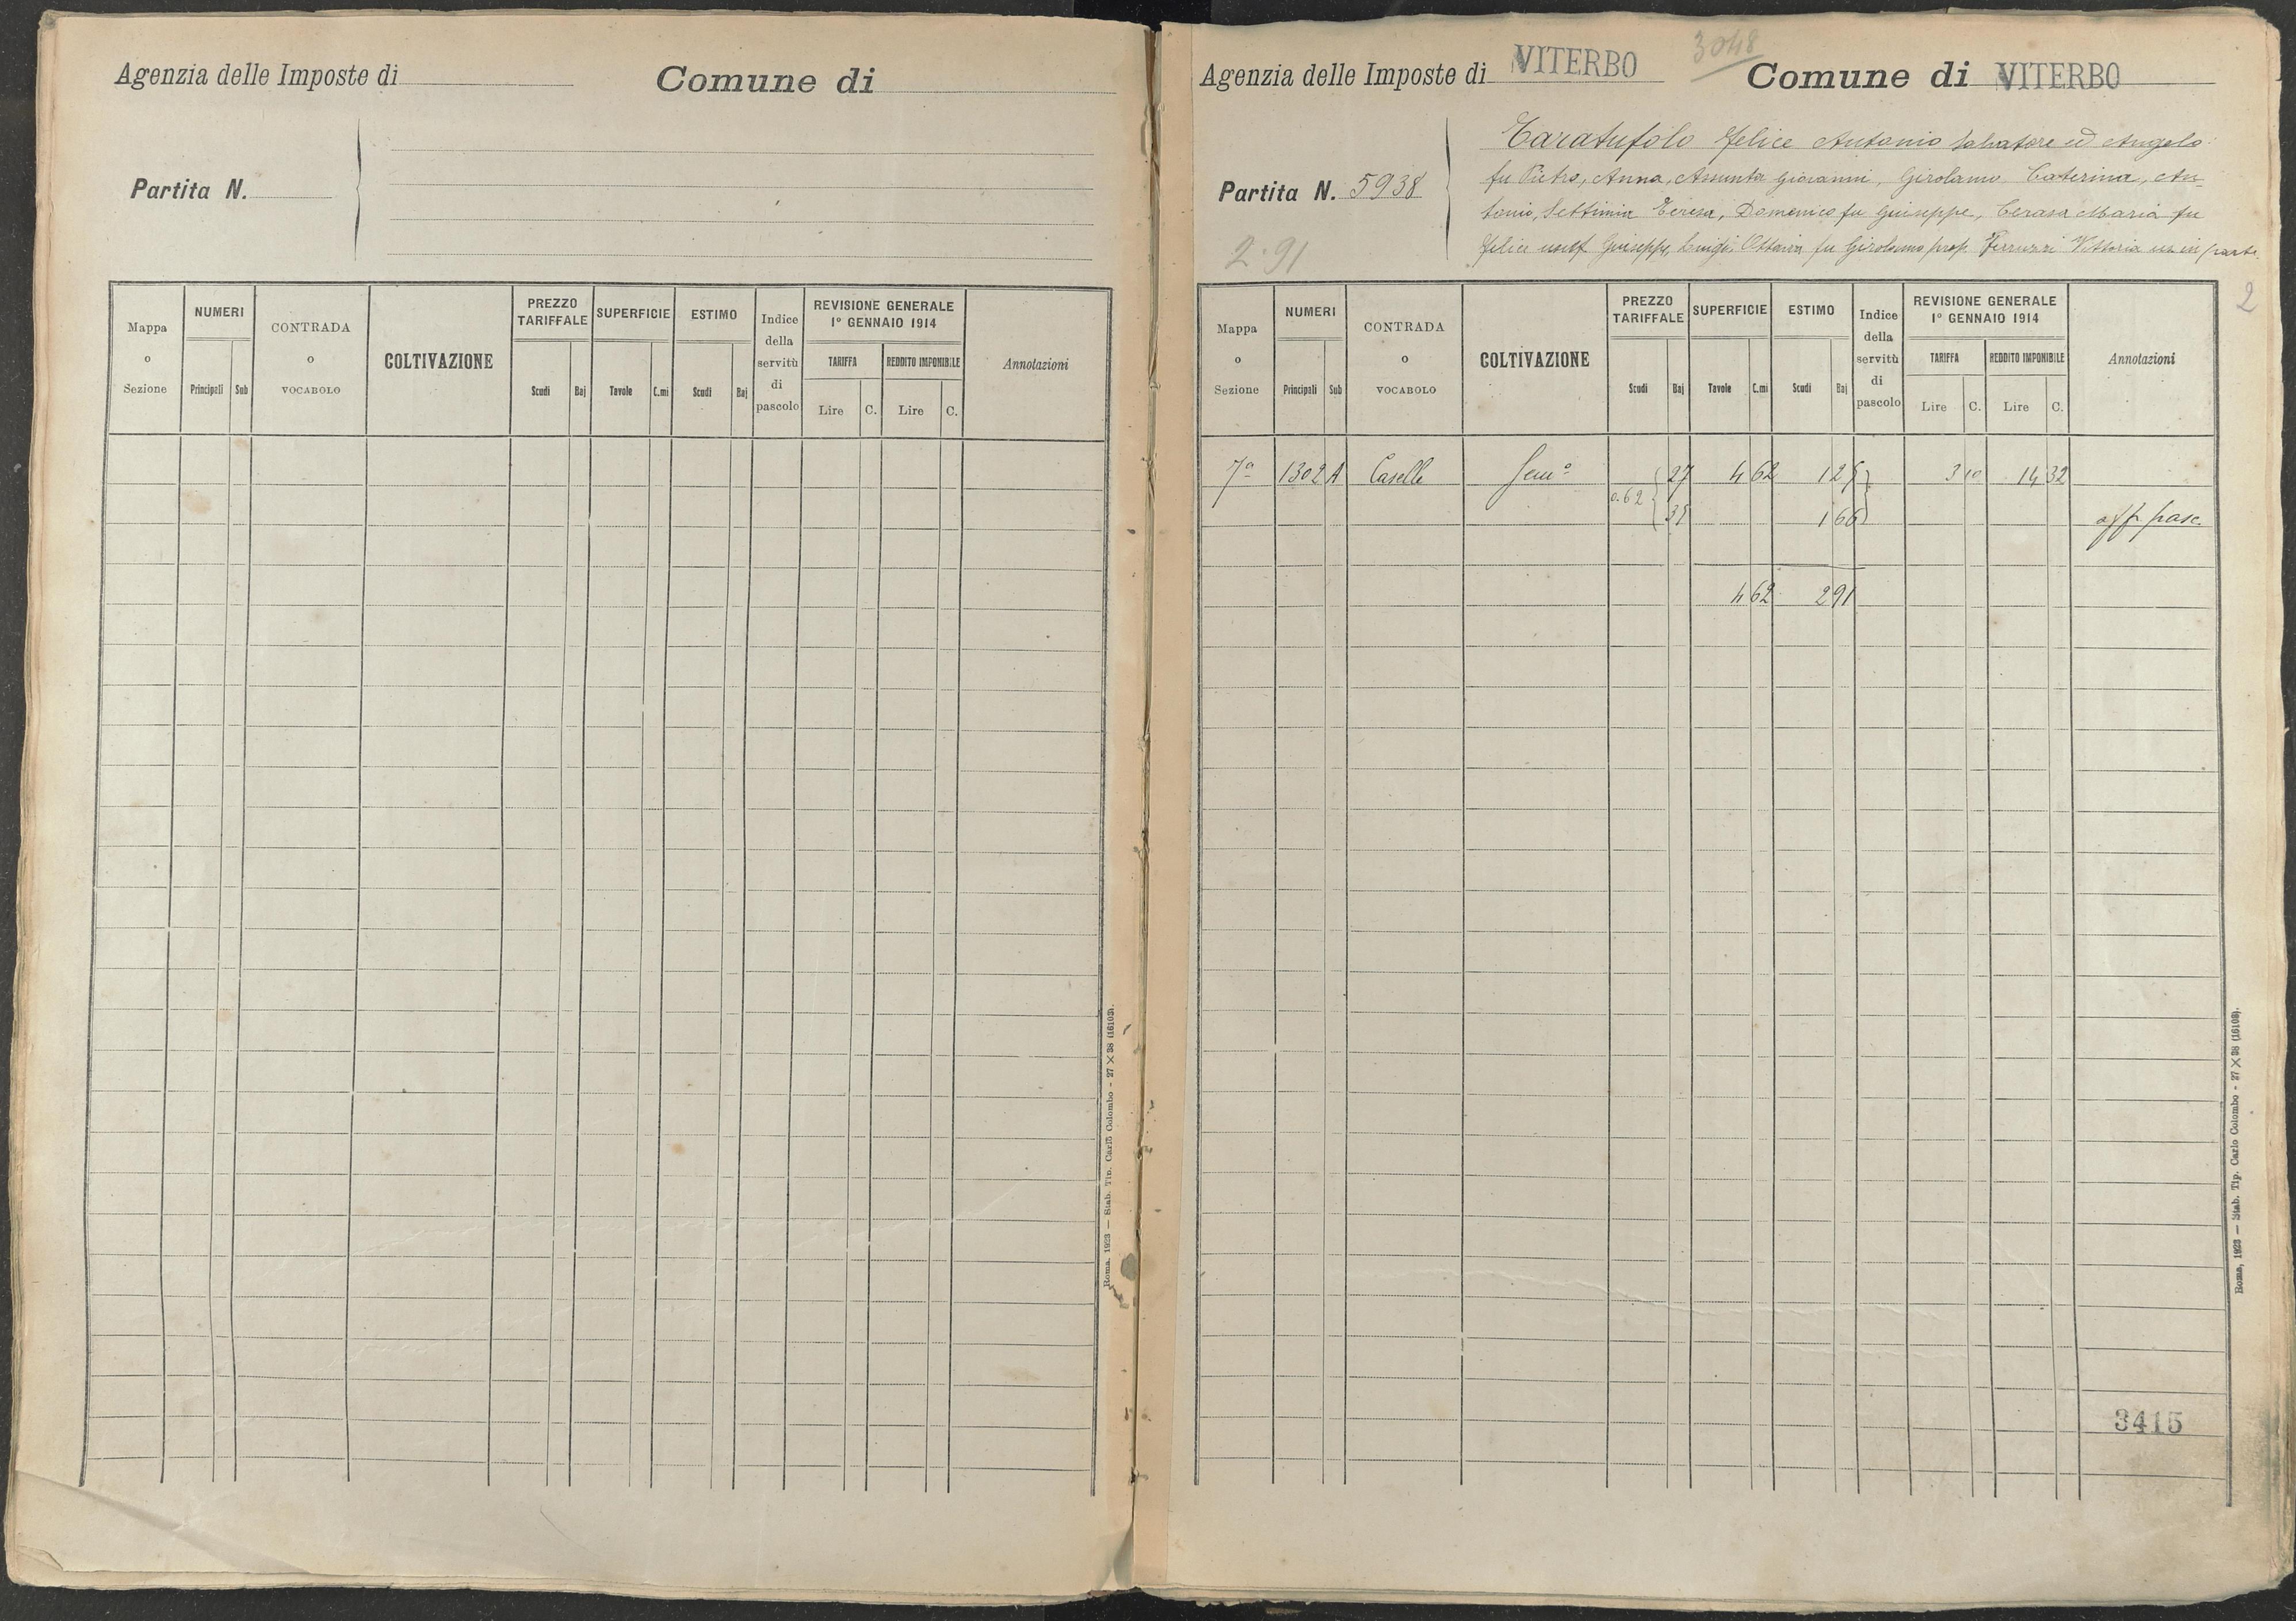 Agenzia delle Imposte di
Comune di
Partita N.
Mappa o Sezione
NUMERI
Principali
Sub
CONTRADA o VOCABOLO
COLTIVAZIONE
PREZZO TARIFFALE
Scudi
Baj
SUPERFICIE
Tavole
C.mi
ESTIMO
Scudi
Baj
Indice della servitù di pascolo
REVISIONE GENERALE
1° GENNAIO 1914
TARIFFA
REDDITO IMPONIBILE
Lire
C.
Lire
C.
Annotazioni
Roma, 1923 — Stab. Tip. Carlo Colombo - 27 × 38 (16103).
3048
Agenzia delle Imposte di VITERBO
Comune di VITERBO
Partita N. 5938
Taratufolo Felice Antonio Salvatore ed Angelo
fu Pietro, Anna, Assunta Giovanni, Girolamo Caterina, An-
tonio, Settimia Teresa, Domenico fu Giuseppe, Cerasa Maria fu
Felice usuf Giuseppe, Luigi, Ottavia fu Girolamo prop. Ferruzzi Vittoria us in parte
2.91
2
Mappa o Sezione
NUMERI
Principali
Sub
CONTRADA o VOCABOLO
COLTIVAZIONE
PREZZO TARIFFALE
Scudi
Baj
SUPERFICIE
Tavole
C.mi
ESTIMO
Scudi
Baj
Indice della servitù di pascolo
REVISIONE GENERALE
1° GENNAIO 1914
TARIFFA
REDDITO IMPONIBILE
Lire
C.
Lire
C.
Annotazioni
7a 1302 A Caselle Sem° 27 4 62 1 25 3 10 14 32
0.62
35 1 66 aff. pasc.
4 62 2 91
3415
Roma, 1923 — Stab. Tip. Carlo Colombo - 27 × 38 (16103).